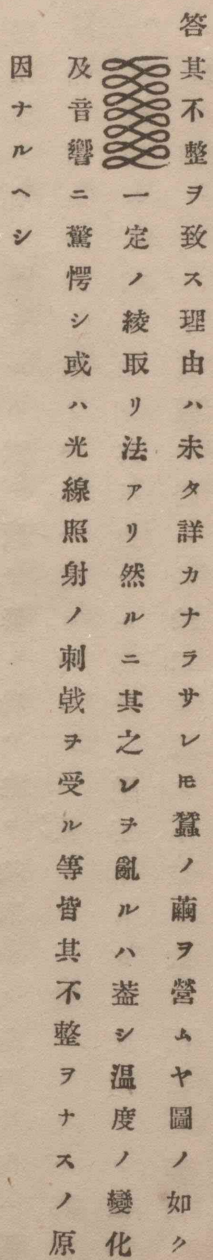 答其不整ヲ致ス理由ハ未タ詳カナラサレ𪜈蠶ノ繭ヲ營ムヤ圖ノ如ク
一定ノ綾取リ法アリ然ルニ其之レヲ亂ルハ蓋シ温度ノ變化
及音響ニ驚愕シ或ハ光線照射ノ刺戟ヲ受ル等皆其不整ヲナスノ原
因ナルヘシ